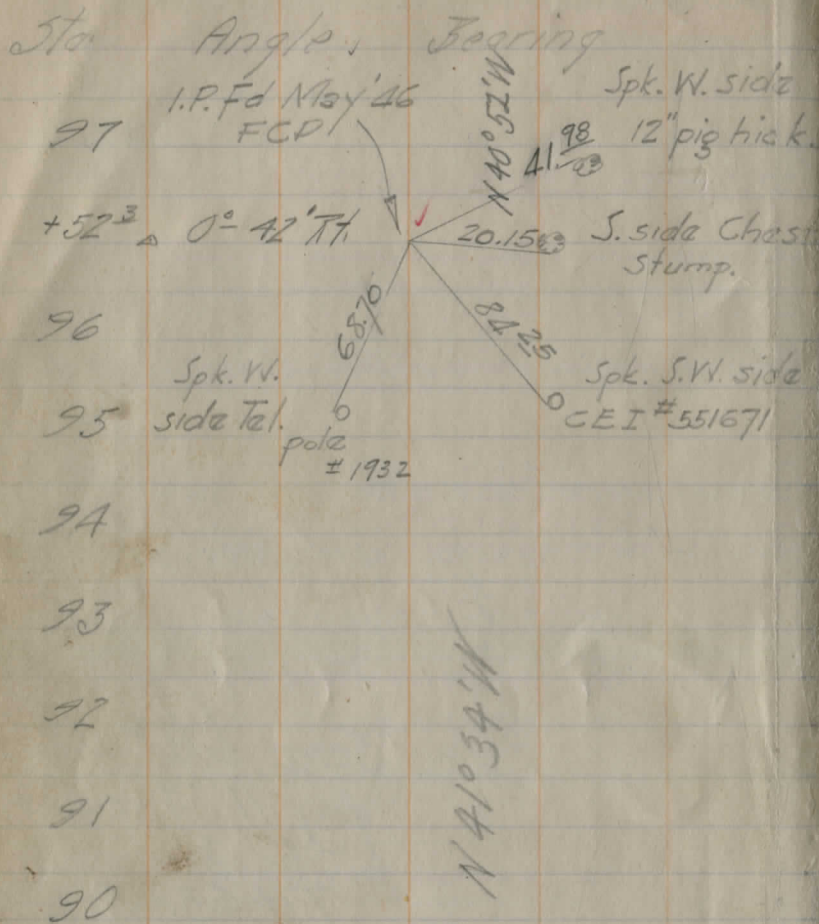 Sta. Angle. Bearing
I.P. Fd May '46
FCP
97
N 40° 52' W
41.98
.93
Spk. W. side
12" pig hick.
+52³ △ 0° - 42' Rt.
20.15
S. side Chest
Stump.
96
68.70
84.25
Spk. W.
side Tel.
pole
# 1932
95
Spk. S.W. side
CEI #551671
94
93
92
N 41° 34' W
91
90